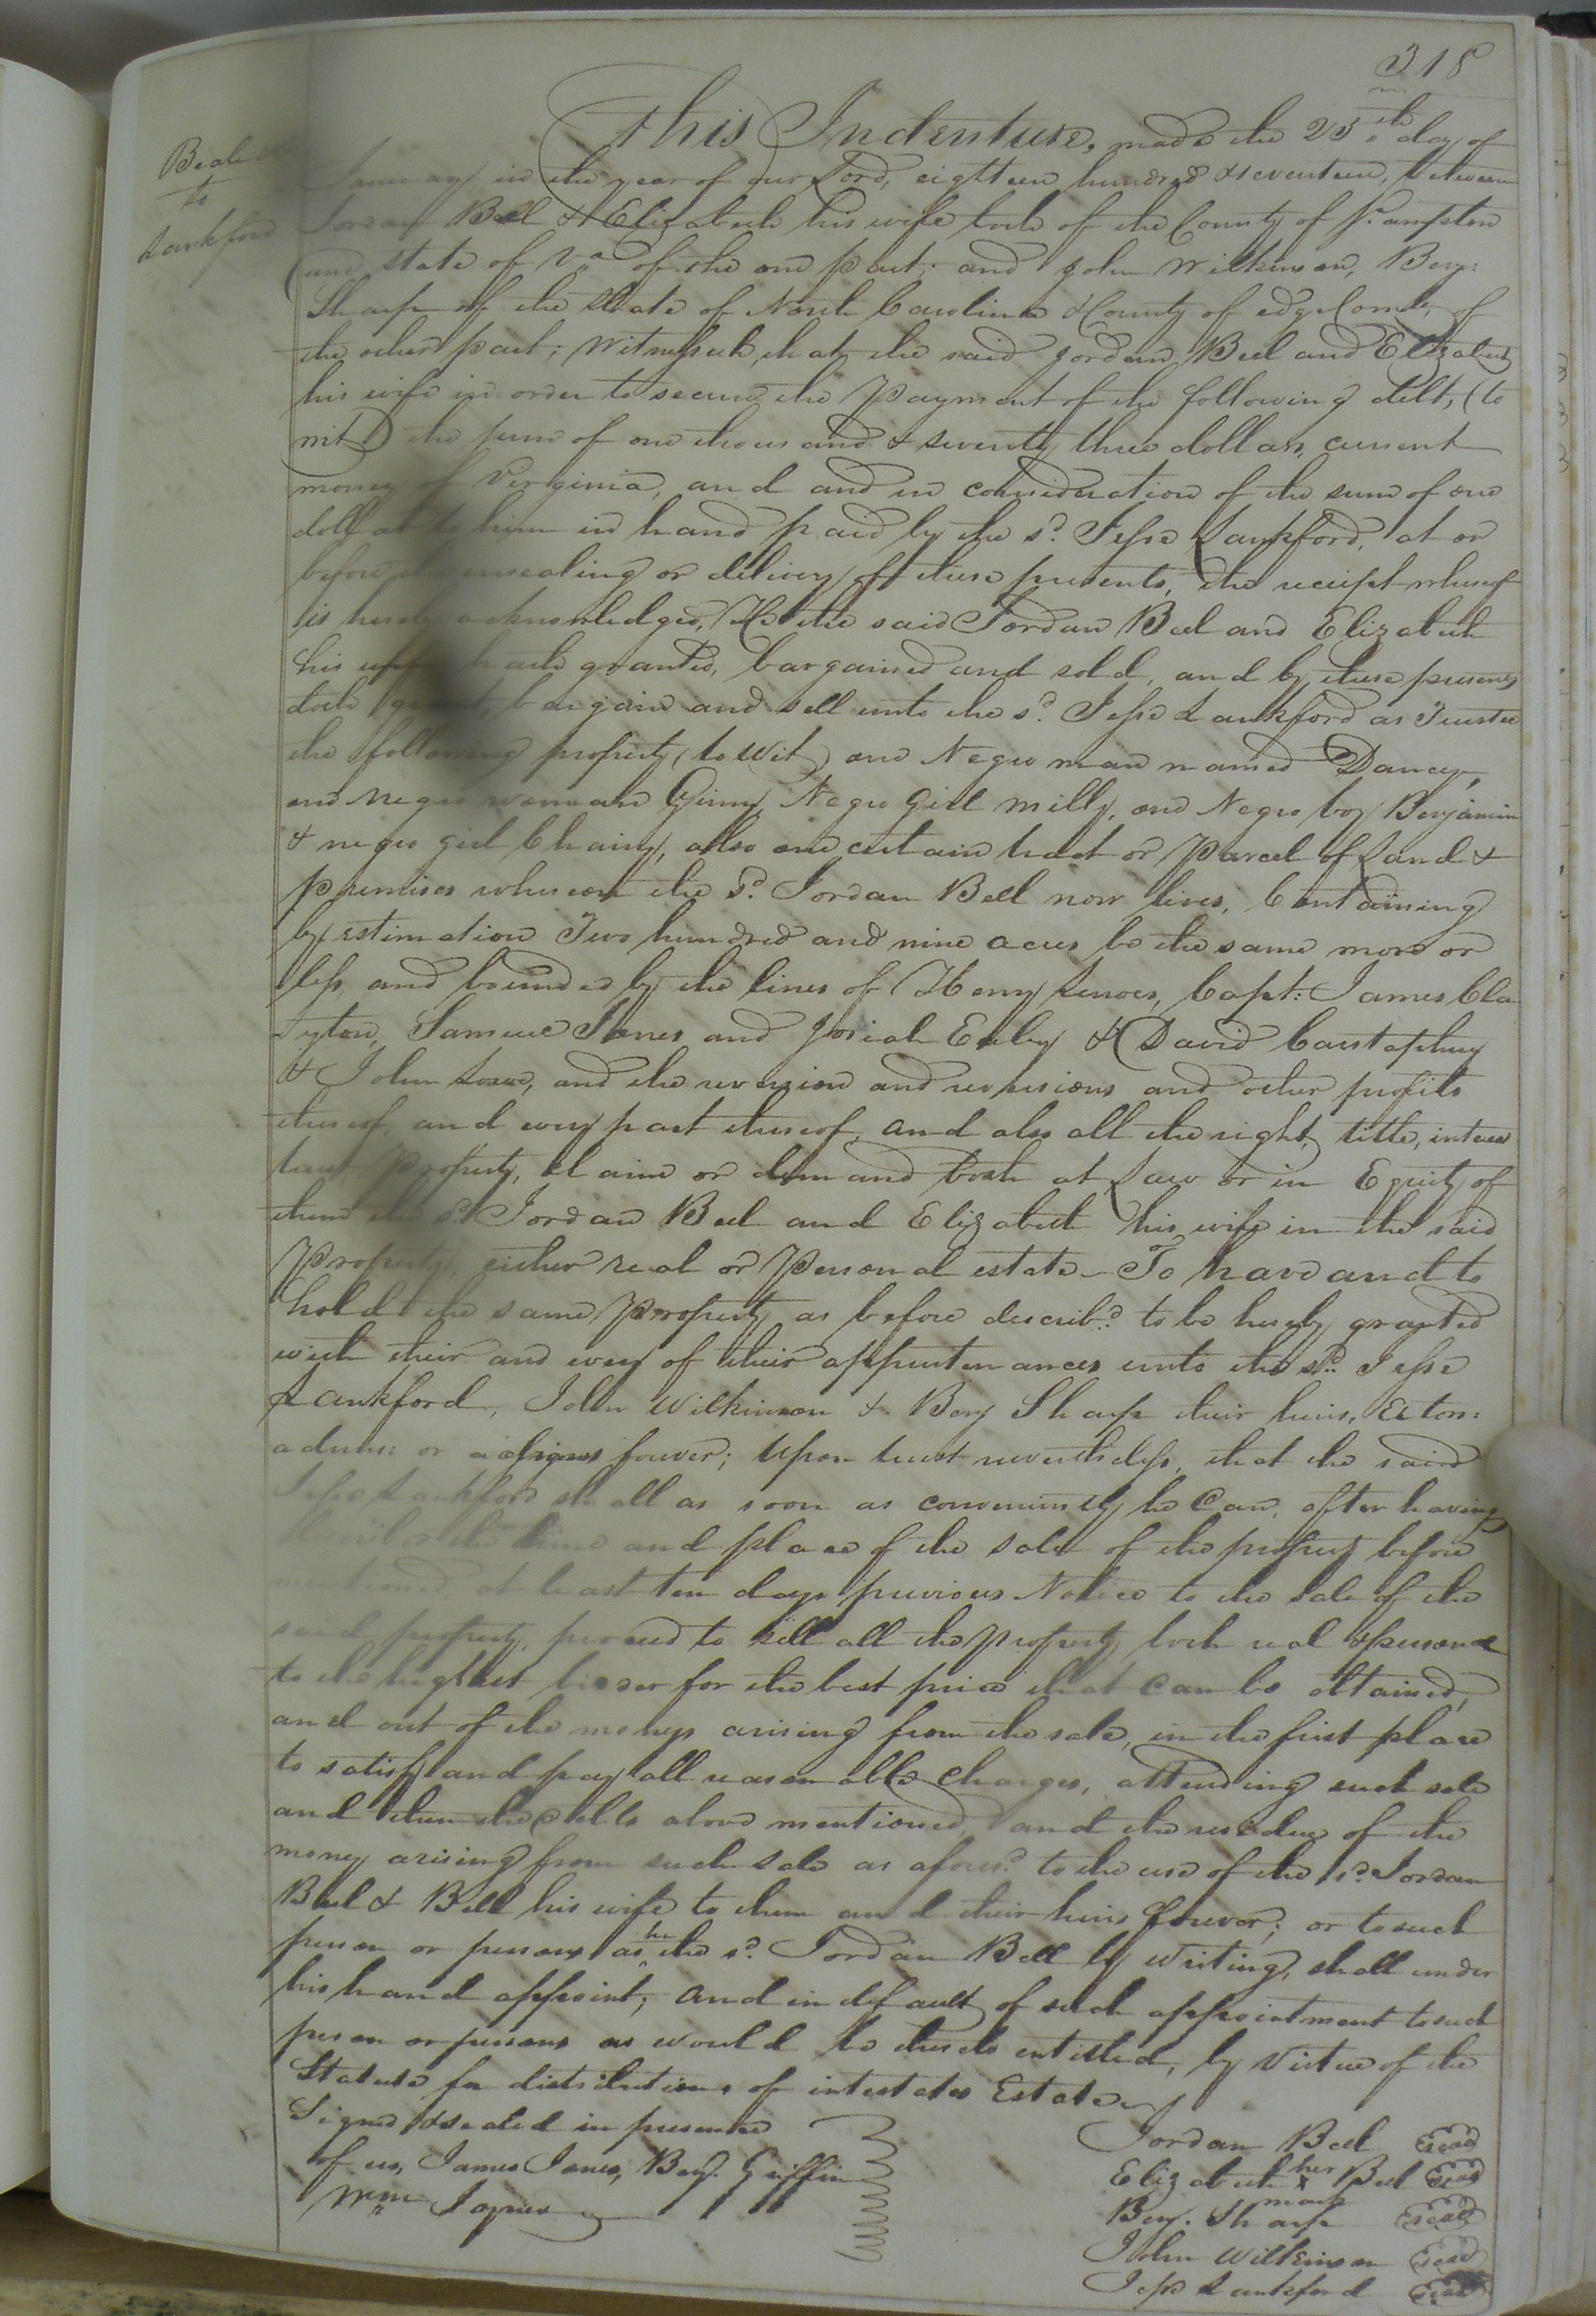 318
Beal &
to
Lankford
This Indenture, made the 25th day of
January, in the year of our Lord, eighteen hundred & seventeen, between
Jordan Bell & Elizabeth his wife both of the County of S.ampton
and state of Va of the one part; and John Wilkinson, Benj:
Sharp of the State of North Carolina & County of edgcomb, of
the other part; Witnesseth, that the said Jordan Bell and Elizabeth
his wife in order to secure the Payment of the following debt, (to
wit) the sum of one thousand & seventy three dollars, current
money of Virginia, and and in consideration of the sum of one
dollar to him in hand paid by the sd. Jesse Lankford, at or
before the ensealing or delivery of these presents, the receipt whereof
is hereby acknowledged, He the said Jordan Bell and Elizabeth
his wife hath granted, bargained and sold, and by these presents
doth grant, bargain and sell unto the sd. Jesse Lankford as Trustee
the following property (to wit) one Negro man named Dancy,
one negro woman Ginny, Negro Girl milly, one Negro boy Benjamin
& negro girl Chainy, also one certain tract or Parcel of Land &
premises whereon the Sd. Jordan Bell now lives, Containing
by estimation Two hundred and nine acres be the same more or
less, and bounded by the lines of Henry Cla
yton, Samuel Jones and Josiah & David
& John and the reversion and reversions and other profits
thereof, and every part thereof, and also all the right, title, interest
trust Property, claim or demand both at Law or in Equity of
them the sd. Jordan Bell and Elizabeth his wife in the said
Property, either real or Personal estate - To have and to
hold the same Property as before describ'd to be hereby granted
with their and every of their appurtenances unto the sd. Jesse
Lankford, John Wilkinson & Benj Sharp their heirs, Exetors:
admrs: or assigns forever; Upon trust nevertheless, that the said
Jesse Lankford shall as soon as conveniently he Can, after having
the time and place of the sale of the property before
mentioned at least ten days previous Notice to the sale of the
said property, proceed to sell all the Property both real & personal
to the highest bidder for the best price that Can be obtained,
and out of the moneys arising from the sale, in the first place
to satisfy and pay all reasonable Charges, attending such sale
and then the debts above mentioned, and the residue of the
money arising from such sale as aforesd. to the use of the sd. Jordan
Bell & Bell his wife to them and their heirs forever; or to such
person or persons as he the sd. Jordan Bell by writing, shall under
his hand appoint; and in default of such appointment to such
person or persons as would be thereto entitled, by Virtue of the
Statute for distributions of intestates Estates
Signed & sealed in presence
of us, James Jones, Benj. Griffin
Wm
Jordan Bell Seal
Elizabeth her x mark Bell Seal
Benj. Sharp Seal
John Wilkinson Seal
Jesse Lankford Seal